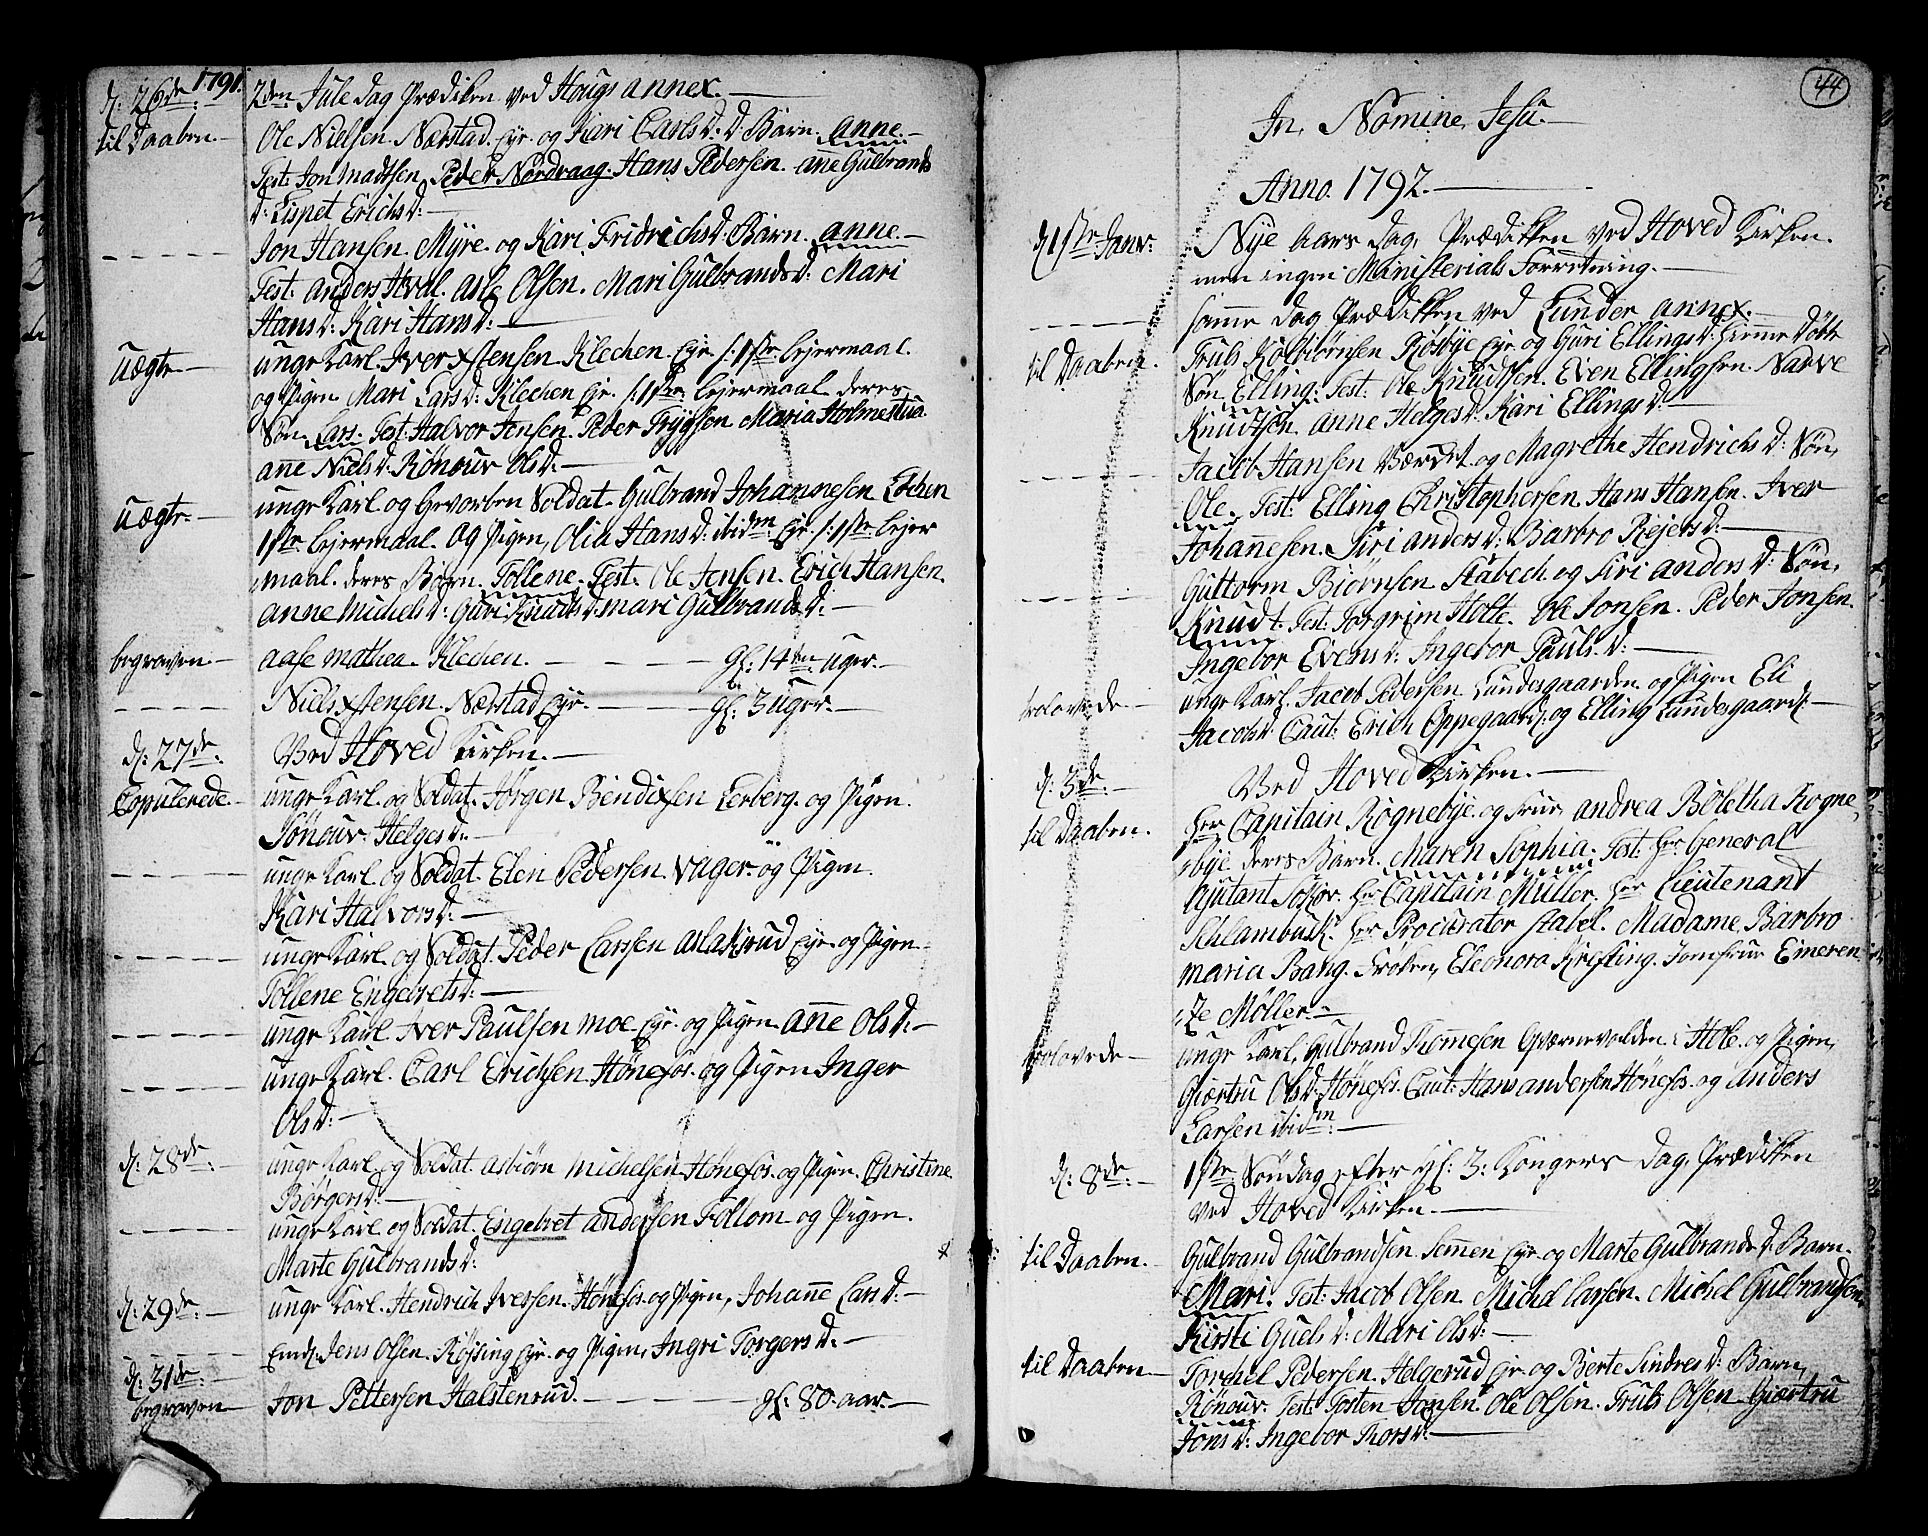 1791.
d: 26de: 2den Jule dag Prædiken ved Hougs annex.
til Daaben. Ole Nielsen Nærstad. Eje. og Kari Carlsd: D. Barn. Anne.
Test: Jon Madtsen, Peder Nordraag. Hans Pedersen. Anne Gulbrands
d: Lispet Erichsd:
Jon Hansen. Myre. og Kari Fridrichsd: Barn. Anne.
Test: Anders Hval. Asle Olsen. Mari Gulbrandsd: Mari
Hansd: Kari Hansd:
Uægte unge Karl Iver Xstensen Klechen. Eje /: 1ste Lejermaal.
og Pigen Mari Larsd: Klechen Eje. /: 1ste Lejermaal deres
Søn. Lars. Test: Halvor Jensen. Peder Trygsen Maria Holmestua
Anne Nielsd. Rønouv Olsd:
Uægte. unge Karl og Gevorben Soldat. Gulbrand Johannesen Lochen
1ste Lejermaal. Og Pigen, Olia Hansd: ibidm Eje. /: 1ste Lejer
maal. deres Barn. Tollene. Test: Ole Jensen. Erich Hansen.
Anne Michelsd: Guri Knudsd: Mari Gulbrandsd:
begraven Aase Mathea. Klechen. gl: 14ten uger.
Niels Xstensen. Nærstad Eje. gl: 3 Uger.
d: 27de Ved Hoved Kirken.
Copulerede. unge Karl. og Soldat. Jørgen Bendixsen Lerberg. og Pigen.
Sønouv Helgesd:
unge Karl. og Soldat. Elen Pedersen. Vager. og Pigen.
Kari Halvorsd:
unge Karl. og Soldat. Peder Larssen Aslaksrud Eje. og Pigen.
Tollene Engebretsd:
unge Karl. Iver Paulsen Moe. Eje. og Pigen. Anne Olsd:
unge Karl. Carl Erichsen Hønefos. og Pigen Inger
Olsd:
d: 28de: unge Karl. og Soldat. Asbiørn Michelsen Hønefos. og Pigen. Christine
Børgersd:
unge Karl og Soldat. Engebret Andersen Follom og Pigen.
Marte Gulbrandsd:
d: 29de: unge Karl. Hendrich Iversen. Hønefos. og Pigen, Johanne Larsd:
Jens Olsen. Røssing Eje. og Pigen, Ingri Torgersd:
d: 31de:
begraven Jon Pettersen Halstenrud. gl: 80. aar.
44
In, Nomine, Jesu.
Anno. 1792.
d: 1ste Janv: Nye Aars dag, Prædikken ved Hoved Kirken.
men ingen Ministerials Forretning.
samme dag Prædikken ved Lunder annex.
til Daaben. Truls Kolbiørnsen Rosbye Eje og Guri Ellingsd:
Søn Elling. Test: Ole Knudtsen. Even Ellingsen. Narve
Knudtsøn. Anne Helgesd: Kari Ellingsd:
Jacob Hansen Værdet og Magrethe Hendrichsd: Søn,
Ole. Test: Elling Christophersen. Hans Hansen. Iver
Johannesen. Siri Andersd: Barbro Rejersd:
Guttorm Biørnsen Stabech og Siri Andersd: Søn,
Knudt. Test: Torgrim Holte. Ole Jonsen. Peder Jonsen.
Ingebor Evensd: Ingebor Paulsd:
trolovede unge Karl. Jacob Pedersen Lundesgaarden. og Pigen Eli
Jacobsd: Caut: Erich Oppegaard, og Elling Lundesgaard.
d: 3de Ved Hoved Kirken.
til Daaben. Herr Capitain Rognebye. og Frue, Andrea Boletha Rogne,
bye deres Barn. Maren Sophia. Test: Herr General
Ajutant Herr Capitain Müller. Herr Lieutenant
Schlambusk. Herr Procurator Stabel. Madame. Barbro
Maria Bang. Frøken, Eleonora Krefting. Jomfrue Emeren
,ze Møller.
trolovede unge Karl. Gulbrand Thomesen Gværnevolden i Hole. og Pigen,
Giærtru Olsd: Hønefos. Caut: Hans Andersen Hønefos. og Anders
Larsen ibidm:
d: 8de: 1ste Søndag efter h: 3: Kongers Dag, Prædikken
ved Hoved Kirken.
til Daaben. Gulbrand Gulbrandsen Semen Eje. og Marte Gulbrandsd: Barn.
Mari. Test: Jacob Olsen. Michel Larsen. Michel Gulbrandsen,
Kirsti Guelsd: Mari Olsd:
til Daaben Torchel Pedersen. Helgerud Eje og Berte Sindresd: Barn,
Rønouv. Test: Tosten Jonsen. Ole Olsen. Truls Olsen. Giærtru
Jonsd: Ingebor Thorsd: